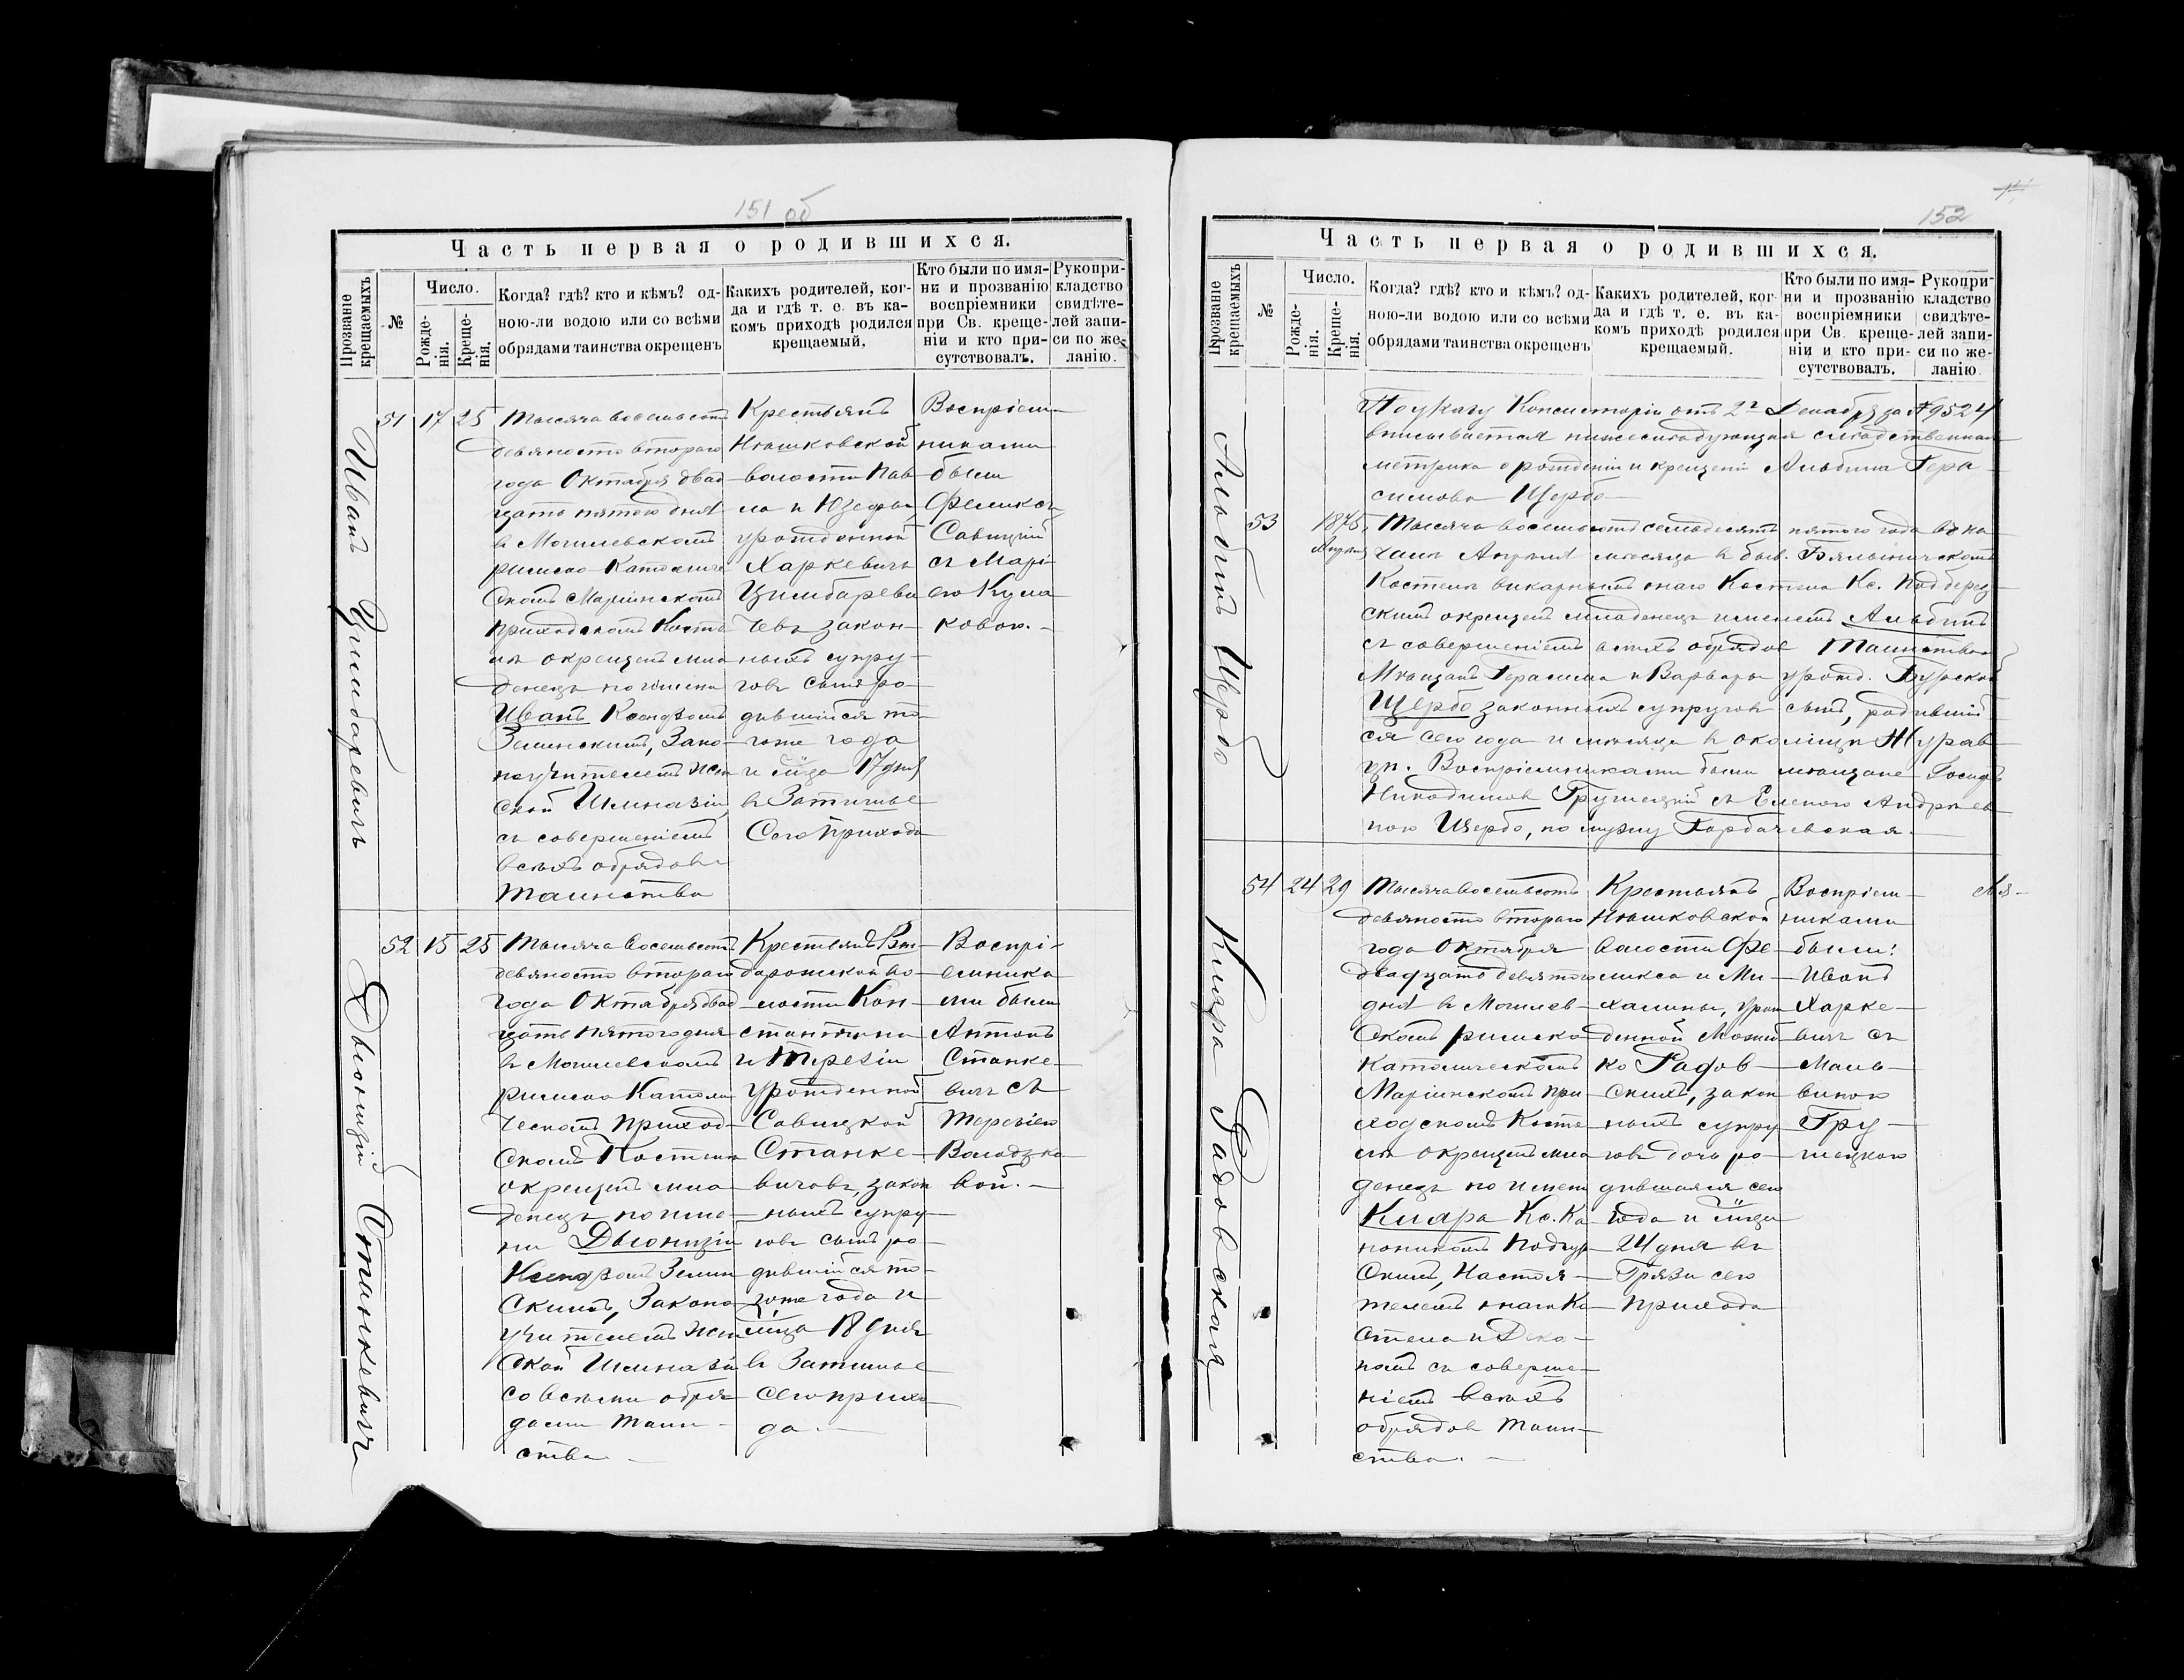 151 об
Часть первая о родившихся.
Прозваніе крещаемыхъ
№
Число.
Рожде-
нія.
Креще-
нія.
Когда? гдѣ? кто и кѣмъ? од-
ною-ли водою или со всѣми
обрядами таинства окрещенъ
Какихъ родителей, ког-
да и гдѣ т. е. въ ка-
комъ приходѣ родился
крещаемый.
Кто были по имя-
ни и прозванію
воспріемники
при Св. креще-
ніи и кто при-
сутствовалъ.
Рукопри-
кладство
свидѣте-
лей запи-
си по же-
ланію.
Иванъ Цимбаревичъ
51 17 25
Тысяча восемьсотъ
девяносто второго
года Октября двад
цать пятого дня
въ Могилевскомъ
римско-Католиче
скомъ Маріинскомъ
приходскомъ Косте
лѣ окрещенъ мла
денецъ по имени
Иванъ Ксендзомъ
Зелинскимъ, Зако-
ноучителемъ Жен
ской Гимназіи
съ совершеніемъ
всѣхъ обрядовъ
Таинства
Крестьянъ
Няшковской
волости Пав
ла и Юзефы,
урожденной
Харкевичъ
Цимбареви
чевъ закон-
ныхъ супру-
говъ сынъ ро-
дившійся то-
гоже года
и м-ца 17 дня
въ Затишье
Сего прихода
Воспріем-
никами
были
Феликсъ
Савицкій
съ Марі-
ею Кула
ковою.-
Дыонизій Станкевичъ
52 15 25
Тысяча восемьсотъ
девяносто второго
года Октября двад
цать пятого дня
въ Могилевскомъ
римско Католи
ческомъ приход-
скомъ Костелѣ
окрещенъ мла-
денецъ по име-
ни Дыонизій
Ксендзомъ Зелин
скимъ, Законо-
учителемъ Жен
ской Гимназіи
со всѣми обря-
дами Таин-
ства
Крестьянъ
во-
лости Кон-
стантина
и Терезіи
урожденной
Савицкой
Станке-
вичовъ, закон
ныхъ супру-
говъ сынъ ро-
дившійся то-
гоже года и
м-ца 18 дня
въ Затишье
сего прихо-
да.-
Воспрі-
емника
ми были
Антонъ
Станке-
вичъ съ
Терезіею
Володзко
вой.-
152
Часть первая о родившихся.
Прозваніе крещаемыхъ
№
Число.
Рожде-
нія.
Креще-
нія.
Когда? гдѣ? кто и кѣмъ? од-
ною-ли водою или со всѣми
обрядами таинства окрещенъ
Какихъ родителей, ког-
да и гдѣ т. е. въ ка-
комъ приходѣ родился
крещаемый.
Кто были по имя-
ни и прозванію
воспріемники
при Св. креще-
ніи и кто при-
сутствовалъ.
Рукопри-
кладство
свидѣте-
лей запи-
си по же-
ланію.
По указу Консисторіи отъ 2го Декабря за № 9524
вписывается нижеслѣдующая слѣдственная
метрика о рожденіи и крещеніи Альбина Гера-
симова Щербо
Альбинъ Щербо
53
1875.
Апрѣля
Тысяча восемьсотъ семьдесятъ пятого года въ на
чалѣ Апрѣля мѣсяца въ быв. Бялыничскомъ
Костелѣ викарнымъ онаго Костела Кс. Подберез-
скимъ окрещенъ младенецъ именемъ Альбинъ
съ совершеніемъ всѣхъ обрядов Таинства
Мѣщанъ Герасима и Варвары урожд. Бурской
Щербо законныхъ супруговъ сынъ, родившій-
ся сего года и мѣсяца въ околицѣ Журав
цѣ. Воспріемниками были мѣщане Іосифъ
Никодимов Грушецкій съ Еленою Андреев-
ною Щербо, по мужу Горбачевская.
Кляра Радовская
54 24 29
Тысяча восемьсотъ
девяносто второго
года Октября
двадцать девятого
дня въ Могилев-
скомъ римско-
католическомъ
Маріинскомъ при-
ходскомъ Косте-
лѣ окрещенъ мла
денецъ по имени
Кляра Кс. Ка
ноникомъ
скимъ, Настоя-
телемъ онаго Ко-
стела и Дека-
номъ съ соверше-
ніемъ всѣхъ
обрядовъ Таин-
ства.-
Крестьянъ
Няшковской
волости Фе-
ликса и Ми-
халины, урож
денной
ко Радов-
скихъ, закон
ныхъ супру
говъ дочь ро-
дившаяся сего
года и м-ца
24 дня въ
Грязи сего
прихода
Воспріем-
никами
были:
Иванъ
Харке-
вичъ съ
Маль-
виною
Гру-
шецкою